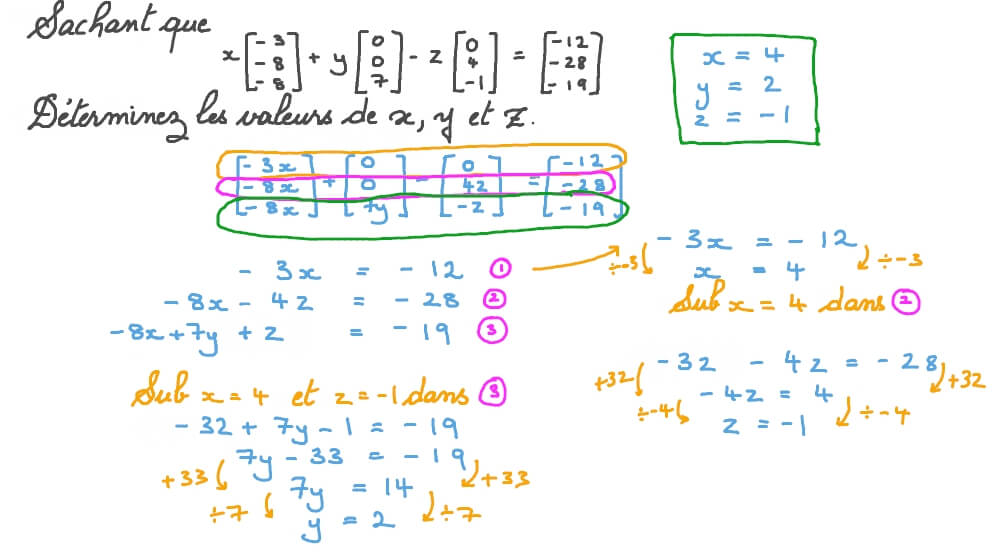 Sachant que
x [-3 -8 -8] + y [0 0 7] - z [0 4 -1] = [-12 -28 -19]
Déterminez les valeurs de x, y et z.
x = 4
y = 2
z = -1
[-3x -8x -8x] + [0 0 7y] - [0 4z -z] = [-12 -28 -19]
-3x = -12 ①
-8x - 4z = -28 ②
-8x + 7y + z = -19 ③
-3x = -12
÷-3 ÷-3
x = 4
Sub x = 4 dans ②
-32 - 4z = -28
+32 +32
-4z = 4
÷-4 ÷-4
z = -1
Sub x = 4 et z = -1 dans ③
-32 + 7y - 1 = -19
7y - 33 = -19
+33 +33
7y = 14
÷7 ÷7
y = 2